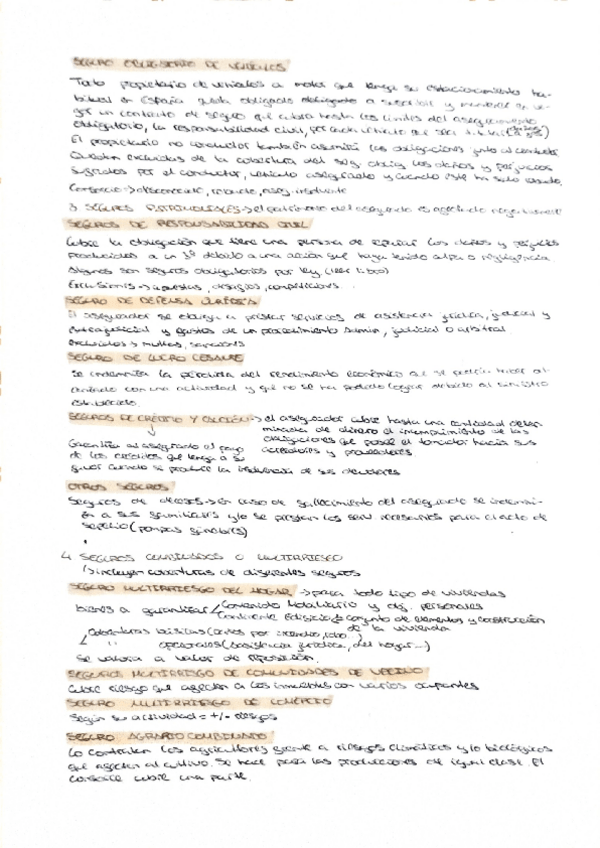 SEGURO OBLIGATORIO DE VEHÍCULOS
Todo propietario de vehículos a motor que tenga su estacionamiento ha-
bitual en España queda obligado a suscribir y mantener en vi-
gor un contrato de seguro que cubra hasta los límites del aseguramiento
obligatorio, la responsabilidad civil, por cada vehículo que sea titular
El propietario no conductor también asumirá las obligaciones junto al conductor
Quedan excluidas de la cobertura del seg. oblig. los daños y perjuicios
sufridos por el conductor, vehículo asegurado y cuando éste ha sido robado.
Consorcio → desconocido, robado,
3. SEGUROS PATRIMONIALES → el patrimonio del asegurado es afectado negativamente
SEGUROS DE RESPONSABILIDAD CIVIL
Cubre la obligación que tiene una persona de reparar los daños y perjuicios
producidos a un 3º debido a una acción que haya tenido culpa o negligencia
Algunos son seguros obligatorios por ley (leer libro)
Exclusiones → apuestas, desafíos, competiciones...
SEGURO DE DEFENSA JURÍDICA
El asegurador se obliga a prestar servicios de asistencia jurídica, judicial y
extrajudicial y gastos de un procedimiento judicial o arbitral
Excluidos → multas, sanciones
SEGURO DE LUCRO CESANTE
Se indemniza la pérdida del rendimiento económico que se podría haber al-
canzado con una actividad y que no se ha podido lograr debido al siniestro
establecido.
SEGUROS DE CRÉDITO Y CAUCIÓN → el asegurador cubre hasta una cantidad deter-
minada de dinero el incumplimiento de las
obligaciones que posee el tomador hacia sus
acreedores y proveedores
↓
Garantiza al asegurado el pago
de los créditos que tenga a su
favor cuando se produce la insolvencia de sus deudores
OTROS SEGUROS
Seguros de decesos → en caso de fallecimiento del asegurado se indemni-
za a sus familiares y/o se prestan los serv. necesarios para el acto de
sepelio (pompas fúnebres)
4. SEGUROS COMBINADOS O MULTIRRIESGO
↳ incluyen coberturas de diferentes seguros
SEGURO MULTIRRIESGO DEL HOGAR → para todo tipo de viviendas
bienes a garantizar Contenido Mobiliario y obj. personales
Continente Edificio/s conjunto de elementos y construcción
de la vivienda
Coberturas básicas (daños por incendio, robo...)
" opcionales (asistencia jurídica, del hogar...)
Se valora a valor de reposición.
SEGUROS MULTIRRIESGO DE COMUNIDADES DE VECINO
Cubre riesgo que afectan a los inmuebles con varios ocupantes
SEGURO MULTIRRIESGO DE COMERCIO
Según su actividad = +/- riesgos
SEGURO AGRARIO COMBINADO
Lo contratan los agricultores frente a riesgos climáticos y/o biológicos
que afectan al cultivo. Se hace para las producciones de igual clase. El
consorcio cubre una parte.